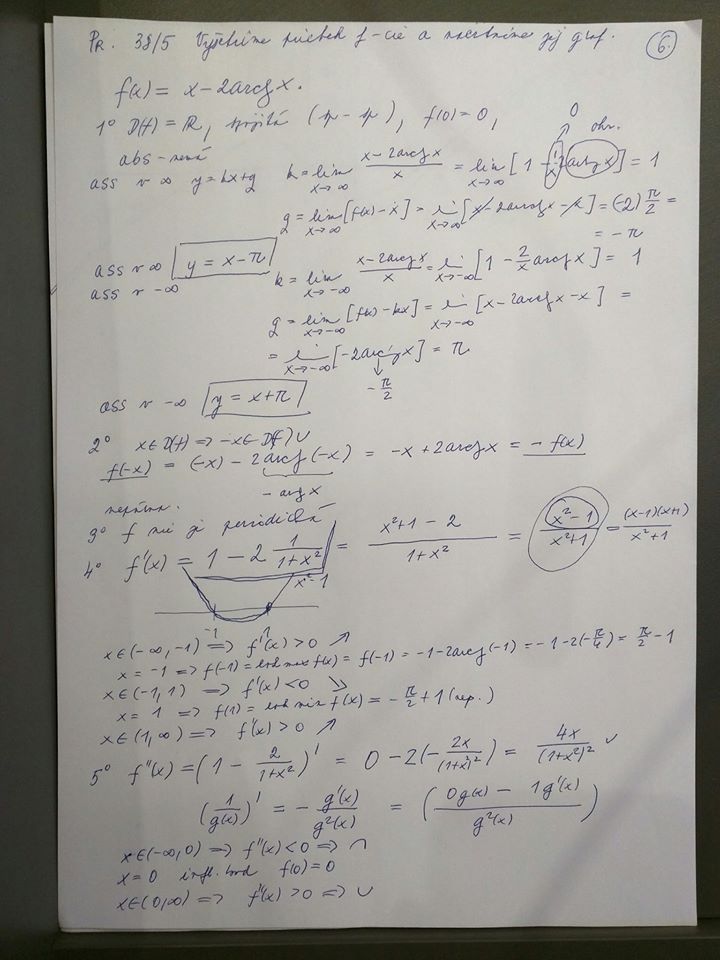 Pr. 38/5 Vyšetrime priebeh f-cie a načrtnime jej graf. 6.
f(x) = x - 2arctg x.
1° D(f) = R, spojitá (sp - sp), f(0) = 0,
abs - nemá
ass v ∞ y = kx+q k = lim x→∞ (x - 2arctg x)/x = lim x→∞ [1 - 1/x 2arctg x] = 1 0 ohr.
q = lim x→∞ [f(x) - x] = lim x→∞ [x - 2arctg x - x] = (-2) π/2 =
= -π
ass v ∞ y = x - π
ass v -∞ k = lim x→-∞ (x - 2arctg x)/x = lim x→-∞ [1 - 2/x arctg x] = 1
q = lim x→-∞ [f(x) - kx] = lim x→-∞ [x - 2arctg x - x] =
= lim x→-∞ [-2arctg x] = π
-π/2
ass v -∞ y = x+π
2° x∈D(f) => -x∈D(f) ∪
f(-x) = (-x) - 2arctg(-x) = -x + 2arctg x = - f(x)
- arctg x
nepárna.
3° f nie je periodická
4° f'(x) = 1 - 2 1/(1+x²) = (x²+1-2)/(1+x²) = (x²-1)/(x²+1) = (x-1)(x+1)/(x²+1)
x²-1
-1 1
x∈(-∞,-1) => f'(x) > 0 ↗
x = -1 => f(-1) = lok max f(x) = f(-1) = -1 - 2arctg(-1) = -1 - 2(-π/4) = π/2 - 1
x∈(-1,1) => f'(x) < 0 ↘
x = 1 => f(1) = lok min f(x) = -π/2 + 1 (nep.)
x∈(1,∞) => f'(x) > 0 ↗
5° f''(x) = (1 - 2/(1+x²))' = 0 - 2(-2x/(1+x²)²) = 4x/(1+x²)² ∪
(1/g(x))' = - g'(x)/g²(x) = ((0g(x) - 1g'(x))/g²(x))
x∈(-∞,0) => f''(x) < 0 => ∩
x = 0 infl. bod f(0) = 0
x∈(0,∞) => f''(x) > 0 => ∪